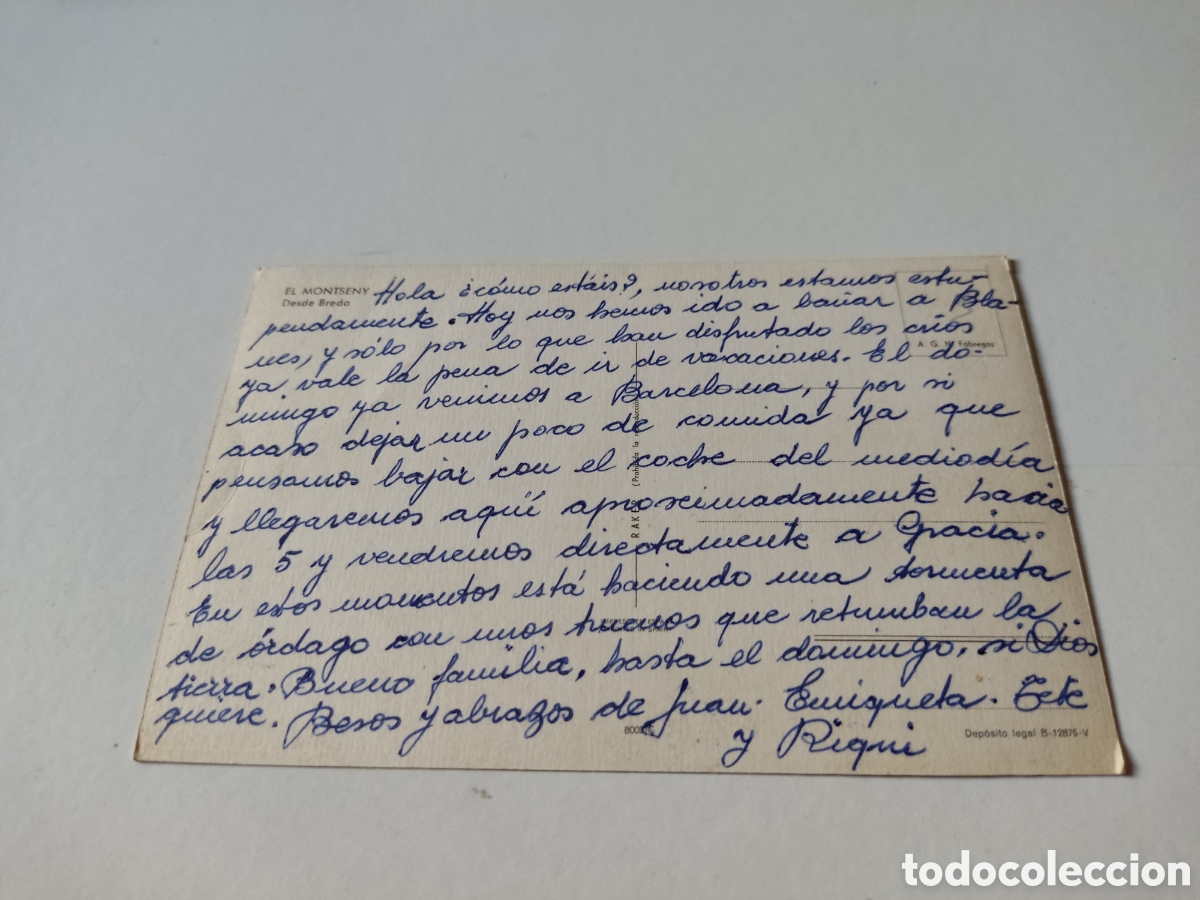 EL MONTSENY
Desde Breda
Hola ¿cómo estáis?, nosotros estamos estu-
pendamente. Hoy nos hemos ido a bañar a Bla-
nes, y sólo por lo que han disfrutado los críos
A. G. N. Fábregas
ya vale la pena de ir de vacaciones. El do-
mingo ya venimos a Barcelona, y por si
acaso dejar un poco de comida ya que
pensamos bajar con el coche del mediodía
y llegaremos aquí aproximadamente hacia
las 5 y vendremos directamente a Gracia.
En estos momentos está haciendo una tormenta
de órdago con unos truenos que retumban la
tierra. Bueno familia, hasta el domingo, si Dios
quiere. Besos y abrazos de Juan. Enriqueta. Tete
y Riqui
RAKER (Prohibida la reproducción)
Depósito legal B-12876-V
todocoleccion